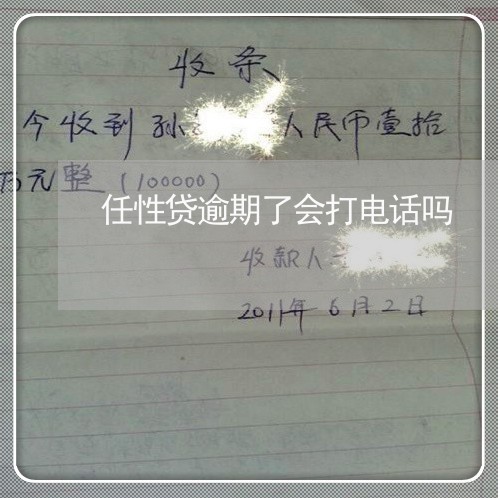 收条
今收到孙人民币壹拾
万元整（100000）
任性贷逾期了会打电话吗
收款人
2011年6月2日